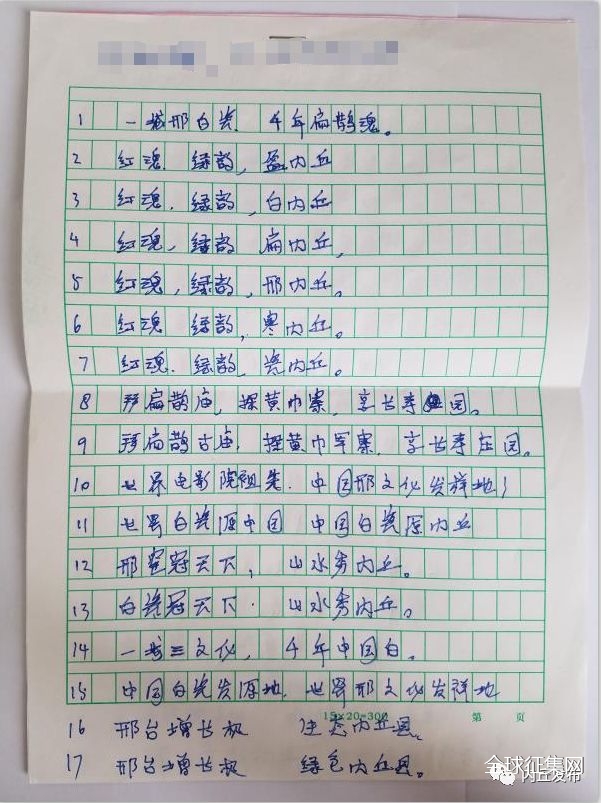 1 一城邢白瓷,千年扁鹊魂。
2 红魂.绿韵,盈内丘
3 红魂.绿韵,白内丘
4 红魂,绿韵 扁内丘,
5 红魂,绿韵,邢内丘。
6 红魂 绿韵,寒内丘。
7 红魂.绿韵,瓷内丘。
8 拜扁鹊庙,探黄巾寨,享长寿园。
9 拜扁鹊古庙.探黄巾军寨,享长寿庄园。
10 世界电影院祖先.中国邢文化发祥地!
11 世界白瓷源中国 中国白瓷源内丘
12 邢窑冠天下, 山水秀内丘。
13 白瓷冠天下. 山水秀内丘。
14 一城三文化, 千年中国白。
15 中国白瓷发源地.世界邢文化发祥地
15×20=300 第 页
16 邢台增长极 生态内丘县。
17 邢台增长极 绿色内丘县。
全球征集网
内丘发布